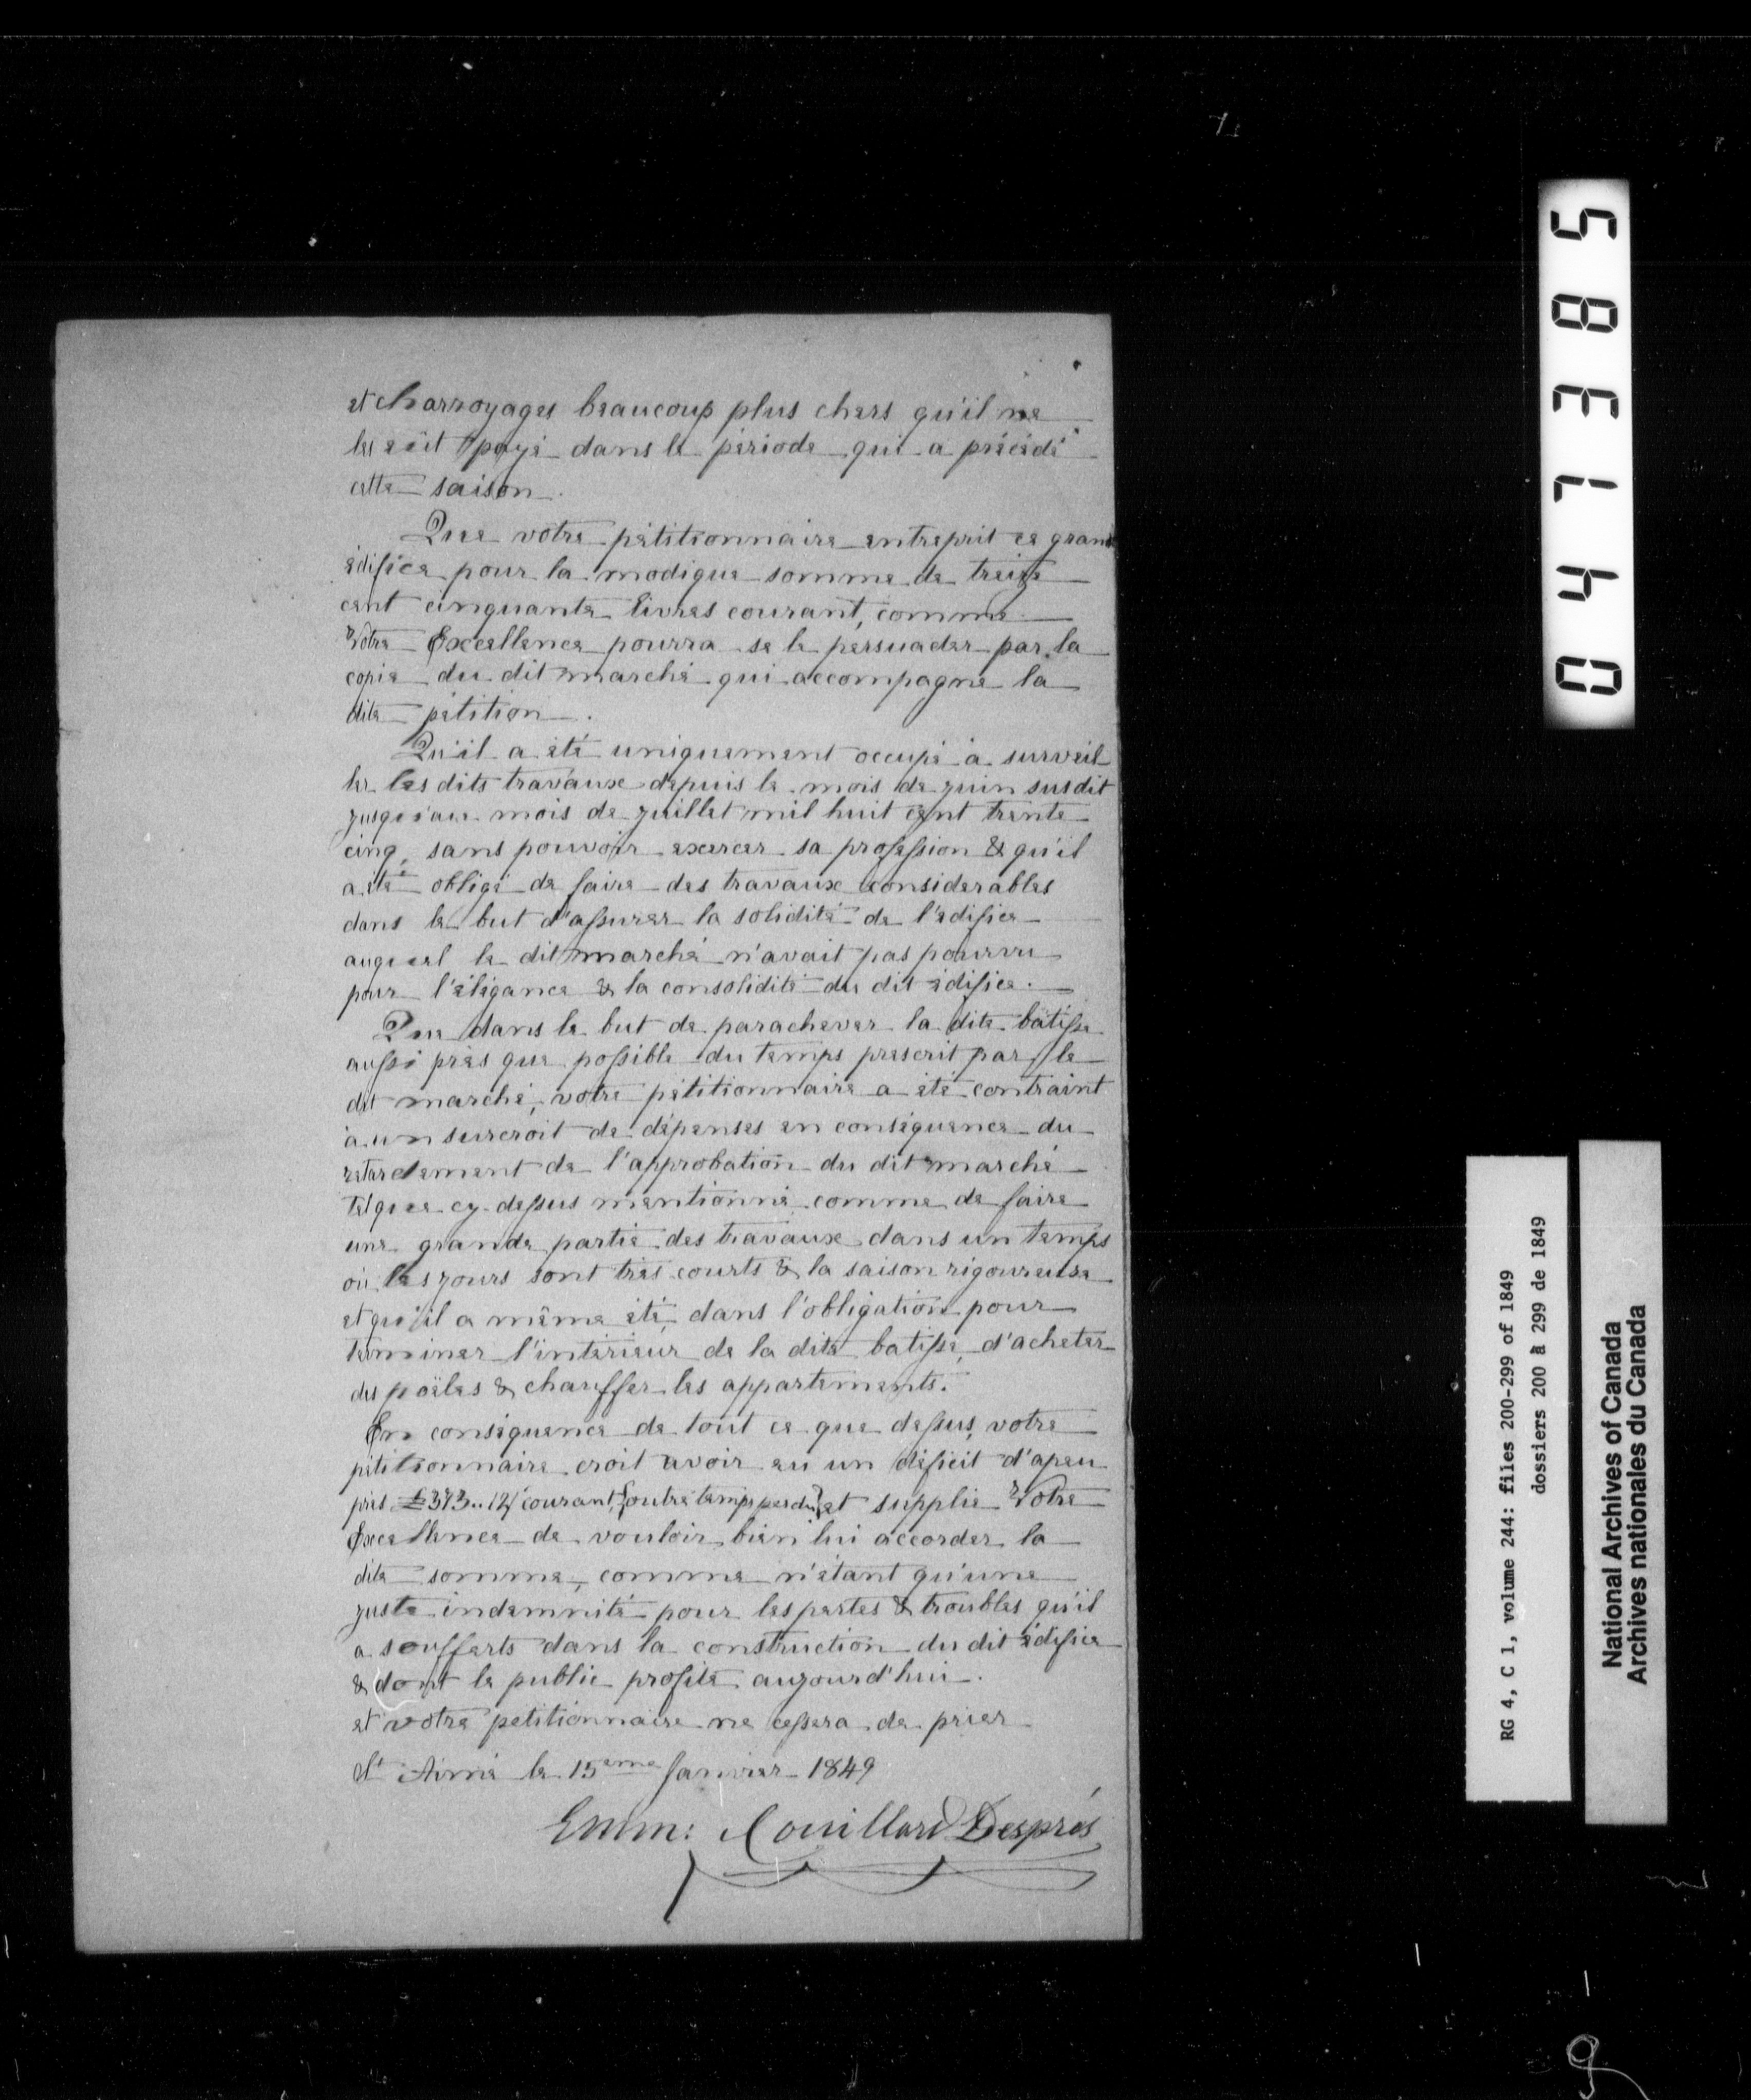 et charroyages beaucoup plus chers qu'il ne
les eût payé dans la période qui a précédé
cette saison.
Que votre pétitionnaire entreprit ce grand
édifice pour la modique somme de treize
cent cinquante livres courant, comme
Votre Excellence pourra se le persuader par la
copie du dit marché qui accompagne la
dite pétition.
Qu'il a été uniquement occupé à surveil
ler les dits travaux depuis le mois de juin susdit
jusqu'au mois de juillet mil huit cent trente
cinq, sans pouvoir exercer sa profession & qu'il
a été obligé de faire des travaux considerables
dans le but d'assurer la solidité de l'édifice
auquel le dit marché n'avait pas pourvu
pour l'élégance & la consolidité du dit édifice.
Que dans le but de parachever la dite bâtisse
aussi près que possible du temps prescrit par le
dit marché, votre pétitionnaire a été contraint
à un surcroit de dépenses en conséquence du
retardement de l'approbation du dit marché
tel que cy-dessus mentionné comme de faire
une grande partie des travaux dans un temps
où les jours sont très courts & la saison rigoureuse
et qu'il a même été dans l'obligation pour
terminer l'intérieur de la dite batisse, d'acheter
des poëles & chauffer les appartements.
En conséquence de tout ce que dessus, votre
pétitionnaire croit avoir eu un déficit d'apeu
près £373..12/ courant, {outre temps perdu} et supplie Votre
Excellence de vouloir bien lui accorder la
dite somme, comme n'étant qu'une
juste indemnité pour les pertes & troubles qu'il
a soufferts dans la construction du dit édifice
& dont le public profite aujourd'hui.
et votre petitionnaire ne cessera de prier
St Aimé le 15eme Janvier 1849
Emm: Couillard Després
047385
RG 4, C 1, volume 244: files 200-299 of 1849
dossiers 200 à 299 de 1849
National Archives of Canada
Archives nationales du Canada